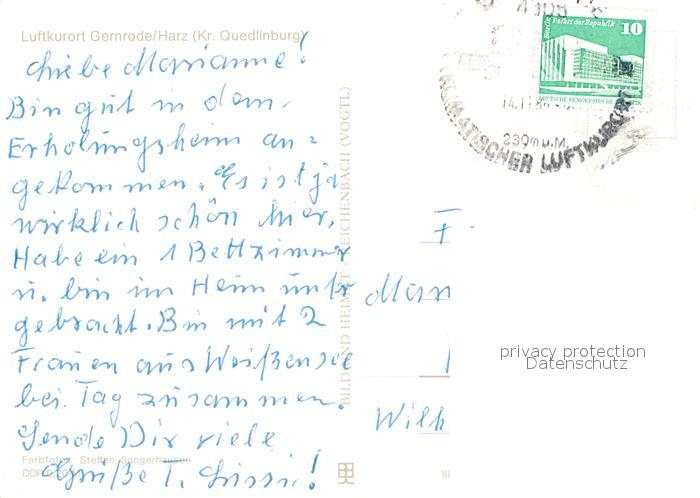 Luftkurort Gernrode/Harz (Kr. Quedlinburg)
Liebe Marianne!
Bin gut in dem
Erholungsheim an=
gekommen. Es ist ja
wirklich schön hier,
Habe ein 1 Bettzimmer
u. bin im Heim unter
gebracht. Bin mit 2
Frauen aus Weißensee
bei Tag zusammen.
Sende Dir viele
Grüße T. Lissi!
Farbfotos: Steffen, Sangerhausen
DDR
BILD UND HEIMAT REICHENBACH (VOGTL)
Berlin Palast der Republik
10
DEUTSCHE DEMOKRATISCHE
14.11.
230m ü.M.
KLIMATISCHER LUFTKURORT
F
Mari
Wilh
privacy protection
Datenschutz